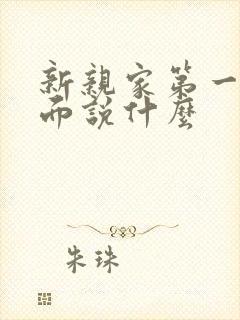 新親家第一
面說什麼
朱珠